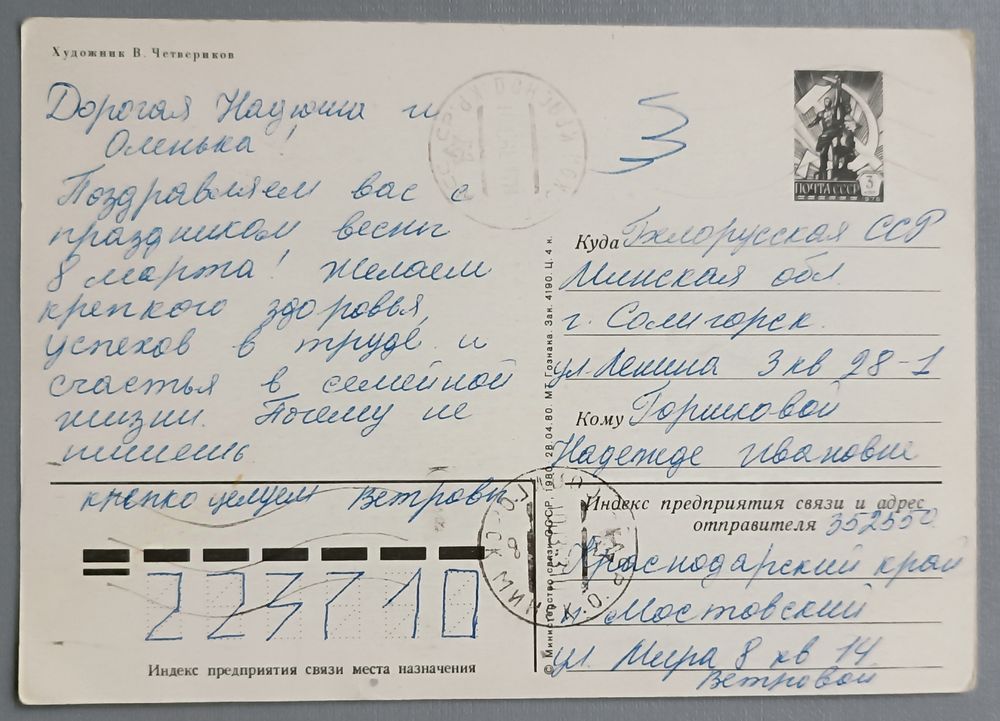 Художник В. Четвериков
Дорогая Надюша и
Оленька!
Поздравляем вас с
праздником весны
8 марта! Желаем
крепкого здоровья,
успехов в труде и
счастья в семейной
жизни. Почему не
пишешь
крепко целуем Ветровы
3
ПОЧТА СССР 3
1976
Куда Белорусская ССР
Минская обл.
г. Солигорск.
ул. Ленина 3 кв 28-1
Кому Горшковой
Надежде Ивановне
Индекс предприятия связи и адрес
отправителя 352550
Краснодарский край
п. Мостовский
ул. Мира 8 кв 14
Ветровой
223710
Индекс предприятия связи места назначения
© Министерство связи СССР, 1980. 28.04.80. МТ Гознака. Зак. 4190. Ц. 4 к.